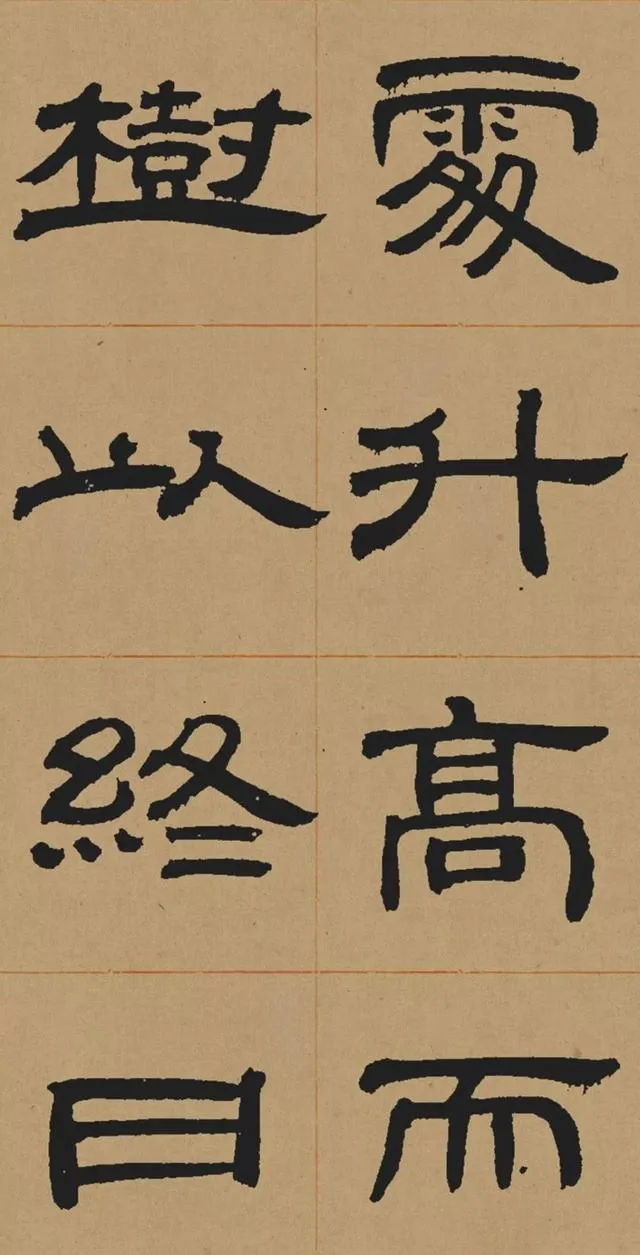 處升高而
樹以終日